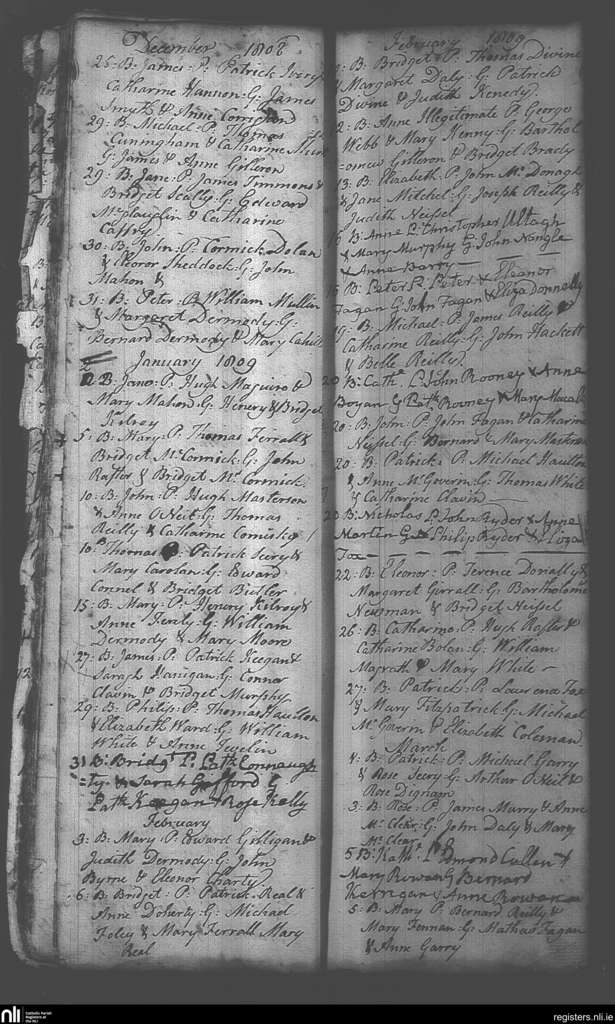 December 1808
25: B: James: P: Patrick Ivory
Catharine Hannon: G: James
Smyth & Anne Corrigan
29: B: Michael: P: Thomas
Cuningham & Catharine
G: James & Anne Gilleron
29: B: Jane: P: James Timmons &
Bridget Scally: G: Edward
McLaughlin & Catharine
Caffry
30: B: John: P: Cormick Dolan
& Elenor Sheddock: G: John
Mahon &
31: B: Peter: P: William Mullin
& Margaret Dermody: G:
Bernard Dermody & Mary Cahill
January 1809
2 B: Jane: P: Hugh Maguire &
Mary Mahon: G: Henery & Bridget
Kilroy
5: B: Mary: P: Thomas Ferrall &
Bridget McCormick: G: John
Rafter & Bridget McCormick
10: B: John: P: Hugh Masterson
& Anne O Neil: G: Thomas
Reilly & Catharine Comisky
10: Thomas P: Patrick Ivery &
Mary Carolan: G: Edward
Connel & Bridget Butler
15: B: Mary: P: Henery Kilroy &
Anne Ferely: G: William
Dermody & Mary Moore
27: B: James: P: Patrick Keegan &
Sarah Hanigan: G: Connor
Clavin & Bridget Murphy
29: B: Philip: P: Thomas Haulton
& Elizabeth Ward: G: William
White & Anne
31 B: Bridgt P: Patk Connaugh
ty & Sarah Gafford G
Patk Keegan & Rose Kelly
February
3: B: Mary: P: Edward Gilligan &
Judith Dermody: G: John
Byrne & Eleonor Charty
6: B: Bridget: P: Patrick Real &
Anne Doherty: G: Michael
Foley & Mary Ferrall Mary
Real
February 1809
B: Bridget: P: Thomas Divine
Margaret Daly: G: Patrick
Divine & Judith Kenedy
12: B: Anne Illegitimate P: George
Webb & Mary Kenny: G: Barthol
omew Gilleron & Bridget Brady
13: B: Elizabeth: P: John McDonagh
& Jane Mitchel: G: Joseph Reilly &
Judith Neissel
B: Anne P: Christopher Ultagh
& Mary Murphy G: John Nangle
& Anne Barry
15 B: Peter P: Peter & Eleanor
Fagan G: John Fagan & Eliza Donnelly
19: B: Michael: P: James Reilly &
Catharine Reilly: G: John Hackett
& Belle Reilly
20 B: Cathe P: John Rooney & Anne
Bogan G Patk Rooney & Mary
20: B: John: P: John Fagan & Catharine
Neissel: G: Bernard & Mary
20: B: Patrick: P: Michael Haulton
& Anne McGovern: G: Thomas White
& Catharine Clavin
20 B: Nicholas P: John Ryder & Anne
Martin G: Philip Ryder &
Fox
22: B: Eleonor: P: Terence Donally &
Margaret Girrall: G: Bartholomew
Newman & Bridget Neissel
26: B: Catharine: P: Hugh Rafter &
Catharine Bolan: G: William
Magrath & Mary White
27: B: Patrick: P: Laurence Fox
& Mary Fitzpatrick: G: Michael
McGavin & Elizabeth Coleman
March
4: B: Patrick: P: Michael Garry
& Rose Ivery: G: Arthur O Neil &
Rose Dignam
3: B: Rose: P: James Marry & Anne
McCleer: G: John Daly & Mary
McCleer
5 B: Kath: P: Edmond Cullen &
Mary Rowan G Bernard
Kernegan & Anne Rowan
5: B: Mary P: Bernard Reilly &
Mary Fennan: G: Mathew Fagan
& Anne Garry
nli
Catholic Parish
Registers at
the NLI
registers.nli.ie